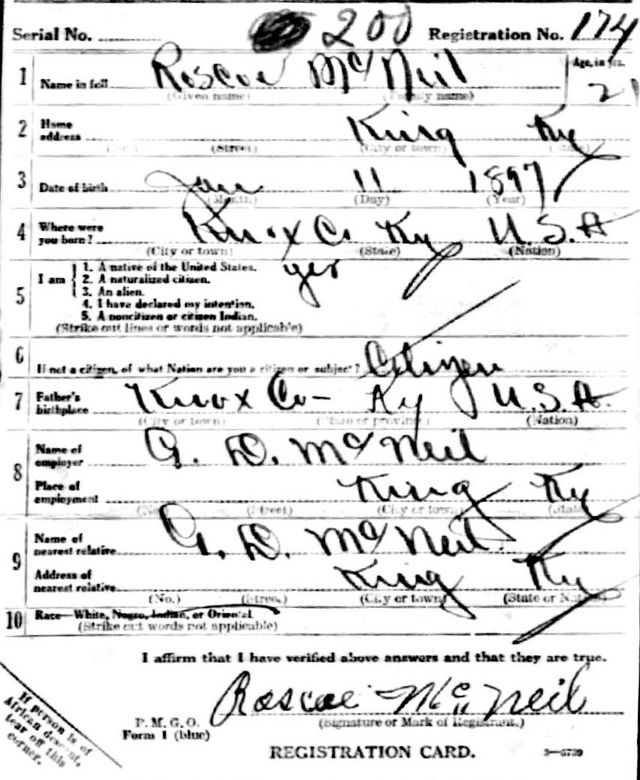 Serial No. 200 Registration No. 174
1 Name in full Roscoe McNeil Age, in yrs. 21
(Given name) (Family name)
2 Home address King Ky
(No.) (Street) (City or town) (State)
3 Date of birth Jan 11 1897
(Month) (Day) (Year)
4 Where were you born? Knox Co Ky U.S.A
(City or town) (State) (Nation)
5 I am
1. A native of the United States. yes
2. A naturalized citizen.
3. An alien.
4. I have declared my intention.
5. A noncitizen or citizen Indian.
(Strike out lines or words not applicable)
6 If not a citizen, of what Nation are you a citizen or subject? Citizen
7 Father's birthplace Knox Co- Ky U.S.A.
(City or town) (State or province) (Nation)
8 Name of employer G. D. McNeil
Place of employment King Ky
(No.) (Street) (City or town) (State)
9 Name of nearest relative G. D. McNeil
Address of nearest relative King Ky
(No.) (Street) (City or town) (State or Nation)
10 Race—White, Negro, Indian, or Oriental
(Strike out words not applicable)
I affirm that I have verified above answers and that they are true.
Roscoe McNeil
P. M. G. O. (Signature or Mark of Registrant.)
Form 1 (blue)
REGISTRATION CARD. 3—6739
If person is of
African descent,
tear off this
corner.